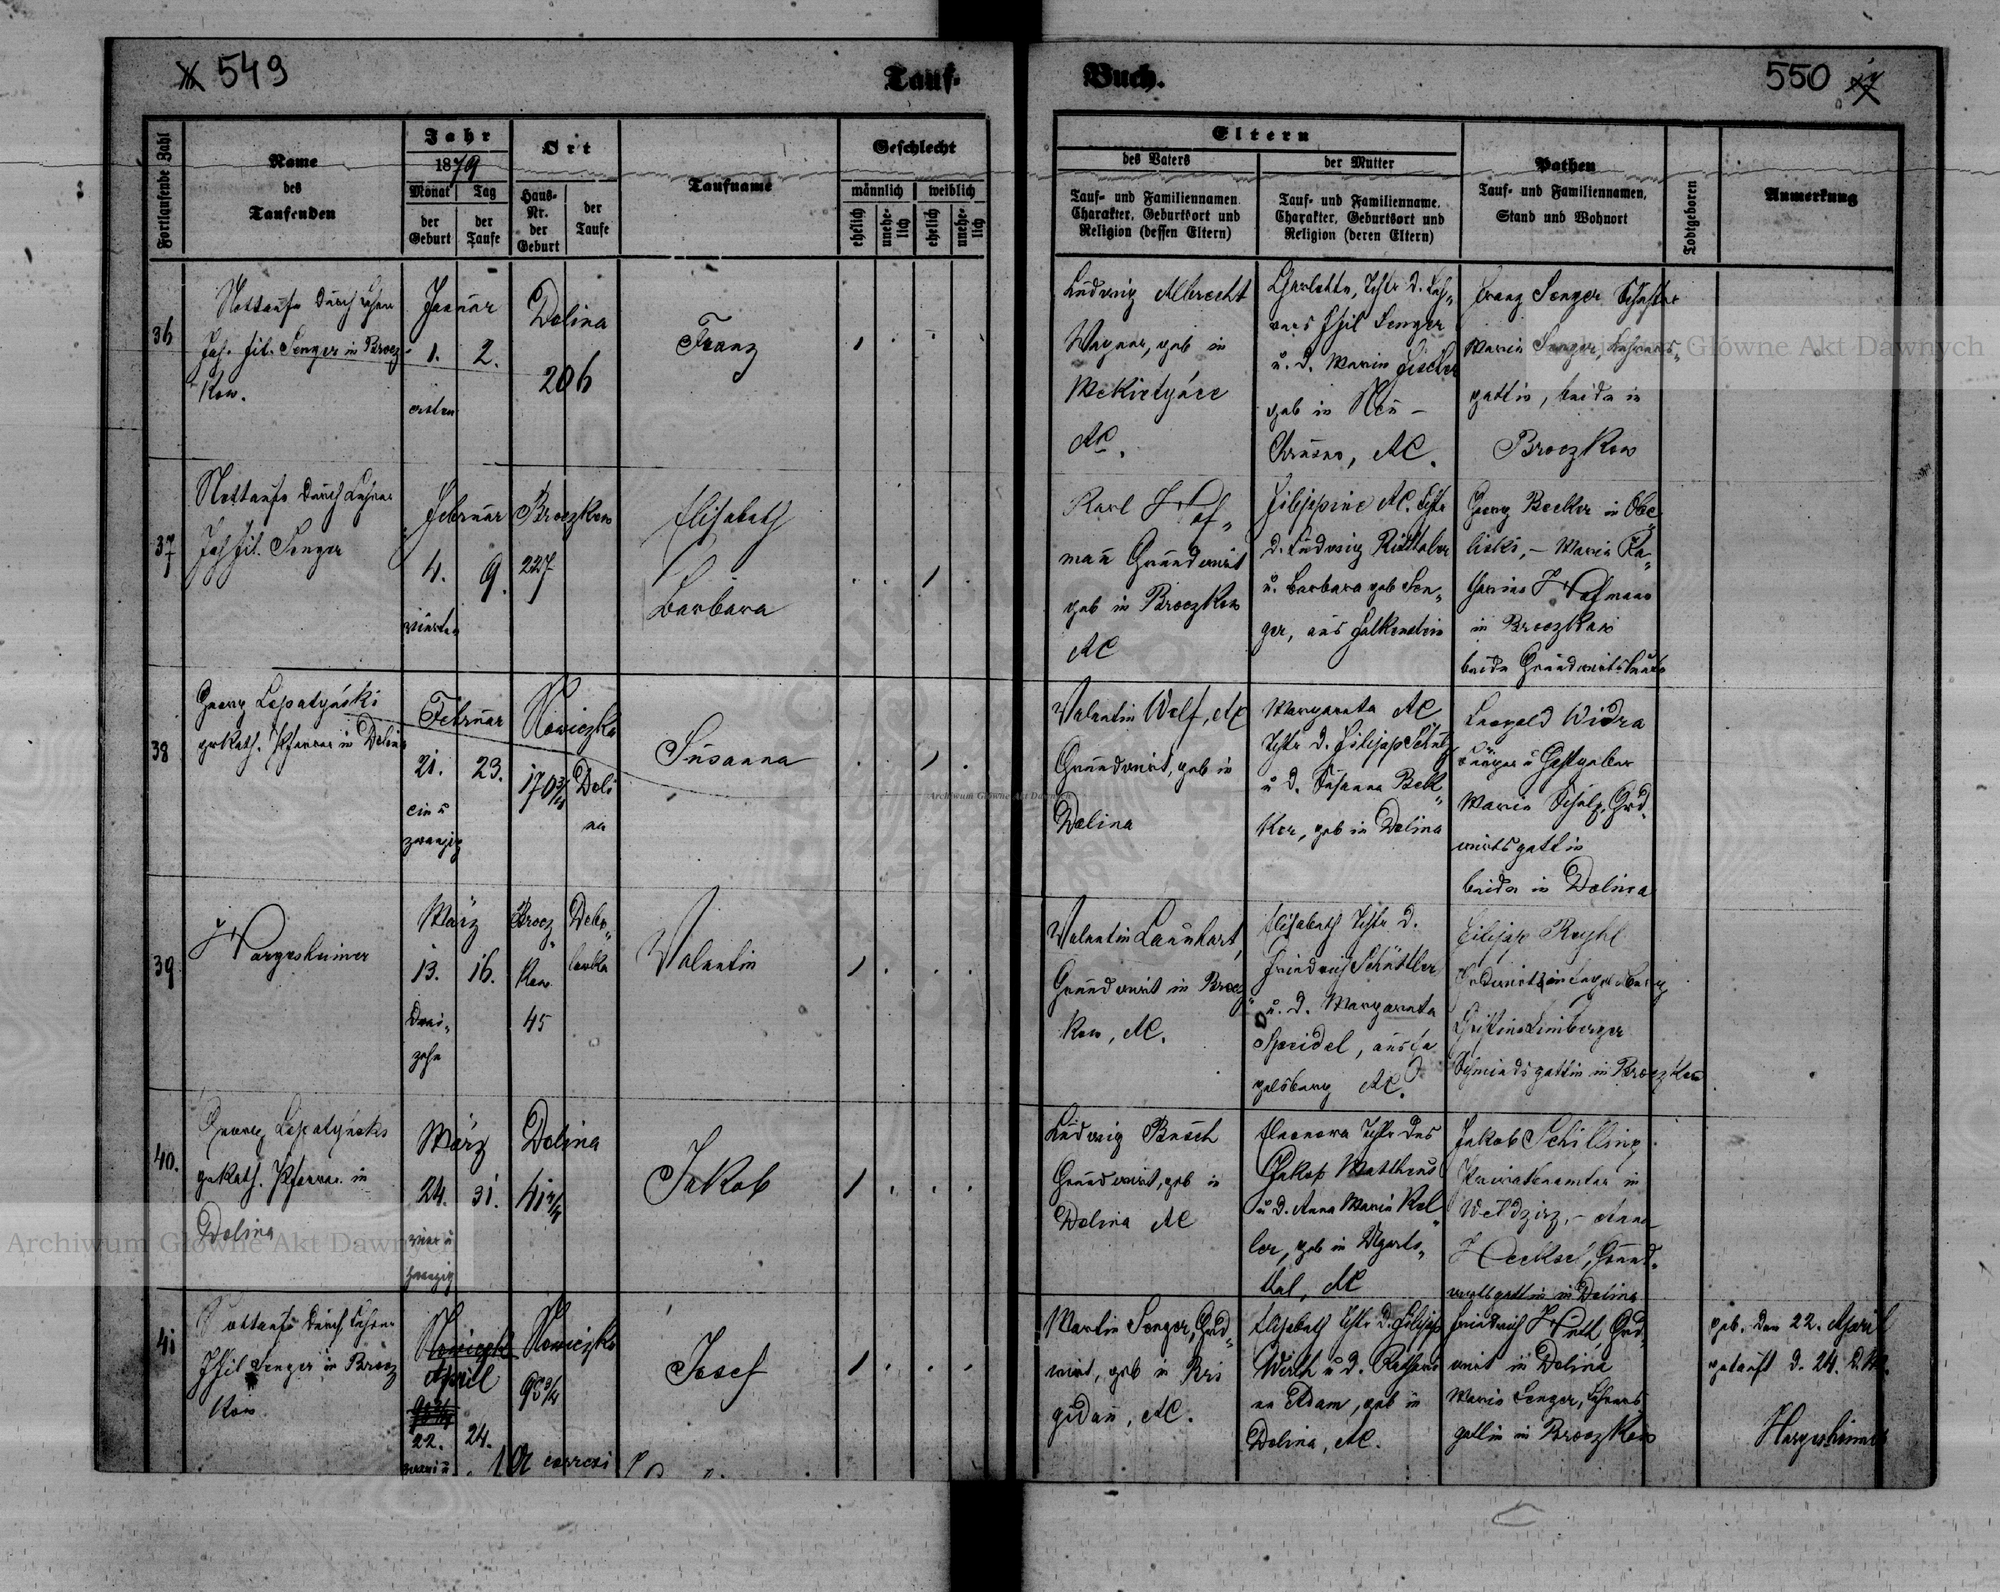 549
Tauf-
Buch.
550
Fortlaufende Zahl
Name
des
Taufenden
Jahr
1879
Monat
Tag
der
Geburt
der
Taufe
Ort
Haus-
Nr.
der
Geburt
der
Taufe
Taufname
Geschlecht
männlich
weiblich
ehelich
unehe-
lich
ehelich
unehe-
lich
Eltern
des Vaters
Tauf- und Familiennamen.
Charakter, Geburtsort und
Religion (dessen Eltern)
der Mutter
Tauf- und Familienname.
Charakter, Geburtsort und
Religion (deren Eltern)
Pathen
Tauf- und Familiennamen,
Stand und Wohnort
Todtgeboren
Anmerkung
36
Nottaufe durch Lehrer
Joh. Fil. Senger in Brocz-
kow.
Januar
1. 2.
ersten
Dolina
206
Franz
Ludwig Albrecht
Wagner, geb in
AC.
Charlotte, Tchtr d. Leh-
rers Fil Senger
u. d. Maria Fischer
geb in Neu-
Chrusno, AC.
Franz Senger
Maria Senger, Lehrers-
gattin, beide in
Broczkow
37
Nottaufe durch Lehrer
Joh Fil. Senger
Februar
4. 9.
vierten
Broczkow
227
Elisabeth
Barbara
Karl Hof-
man Grundwirt
geb in Broczkow
AC
Filippine AC. Tchtr
d. Ludwig
u. Barbara geb Sen-
ger, aus Falkenstein
Georg Becker in Obe-
liski, - Maria Ka-
tharina Hofmann
in Broczkow
beide Grundwirtsleute
38
Georg Lopatyński
grkath. Pfarrer in Dolina
Februar
21. 23.
ein u
zwanzig
Nowiczka
170 3/4
Doli
na
Susanna
Valentin Wolf, AC
Grundwirt, geb in
Dolina
Margareta AC
Tchtr d. Filipp Schulz
u d. Susanna Bek-
ker, geb in Dolina
Leopold Widra
Sänger u Gastgeber
Maria Schulz, Grd.
wirtsgattin
beide in Dolina
39
Hargesheimer
März
13. 16.
drei-
zehn
Brocz-
kow
45
Debo-
lowka
Valentin
Valentin Launhart,
Grundwirt in Brocz-
kow, AC.
Elisabeth Tchtr d.
Friedrich Schüttler
u. d. Margareta
Speidel, aus En-
gelsberg AC.
Filipp Reyhl
Grdwirt in Engelsberg
Schmiedsgattin in Broczkow
40.
Georg Lopatyński
grkath. Pfarrer in
Dolina
März
24. 31.
vier u
zwanzig
Dolina
41 2/4
Jakob
Ludwig Busch
Grundwirt, geb in
Dolina AC
Eleonora Tchtr des
Jakob Mattheus
u d. Anna Maria Kel-
ler, geb in Ugarts-
thal, AC
Jakob Schilling
Privatbeamter in
Weldzirz, - Anna
Heckel, Grund-
wirtsgattin in Dolina
41
Nottaufe durch Lehrer
Fil Senger in Brocz
kow.
April
22. 24.
Nowiczka
95 3/4
Josef
Martin Senger, Grd-
wirt, geb in Bri
gidau, AC.
Elisabeth Tchtr d. Filipp
Wirth u d. Kathari
na Adam, geb in
Dolina, AC.
Friedrich Huth Grd
wirt in Dolina
Maria Senger, Lehrers
gattin in Broczkow
geb. den 22. April
getauft d. 24. d. M.
Hargesheimer
Archiwum Główne Akt Dawnych
Archiwum Główne Akt Dawnych
Archiwum Główne Akt Dawnych